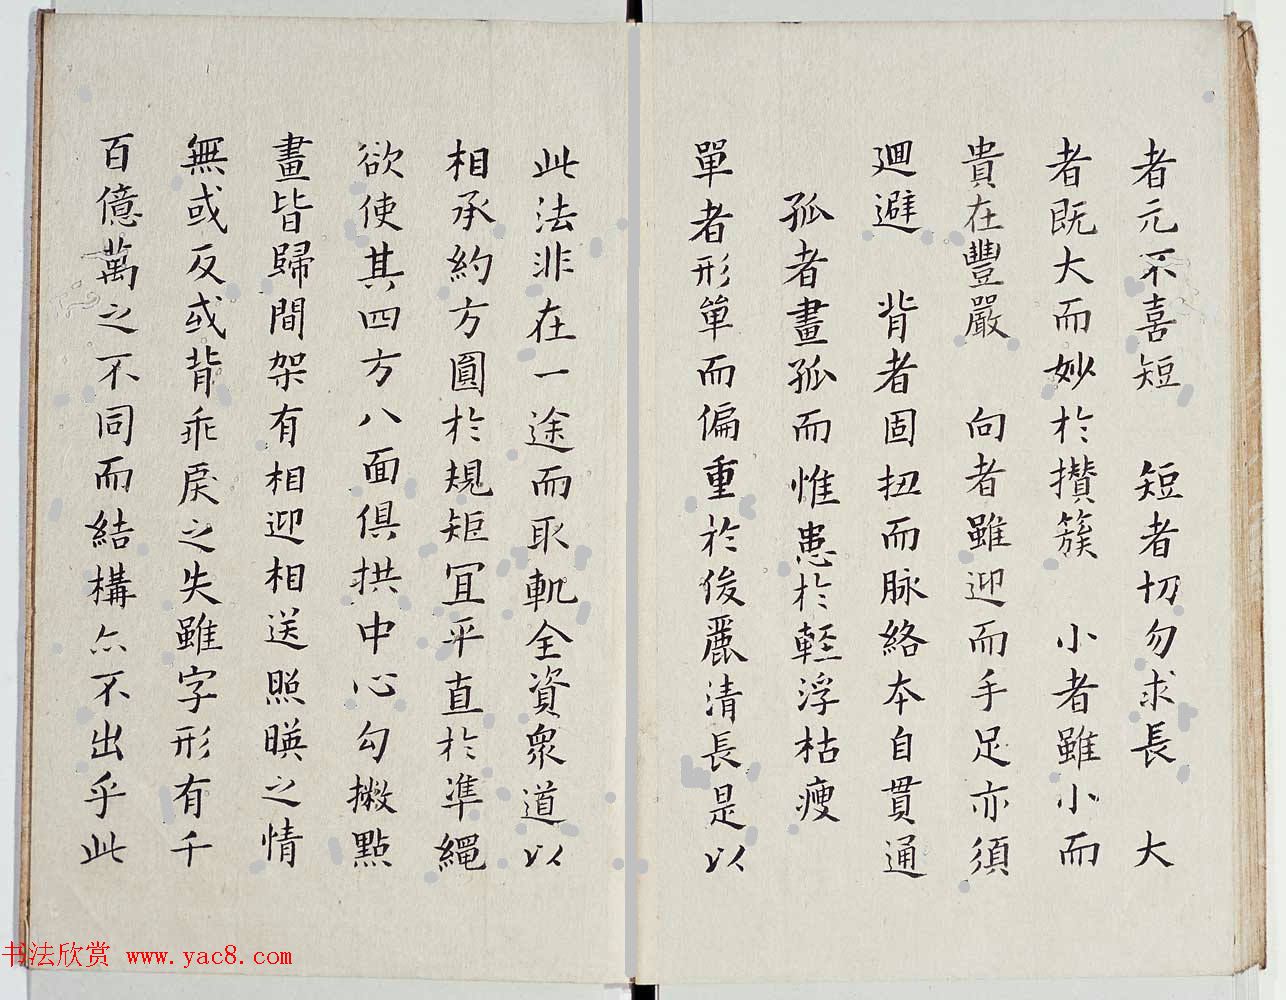 者元不喜短　短者切勿求長　大
者既大而妙於攢簇　小者雖小而
貴在豐嚴　向者雖迎而手足亦須
廻避　背者固扭而脉絡本自貫通
孤者畫孤而惟患於輕浮枯瘦
單者形單而偏重於俊麗清長是以
此法非在一途而取軏全資衆道以
相承約方圓於規矩冝平直於準繩
欲使其四方八面俱拱中心勾撇點
畫皆歸間架有相迎相送照暎之情
無或反或背乖戾之失雖字形有千
百億萬之不同而結構亦不出乎此
书法欣赏 www.yac8.com